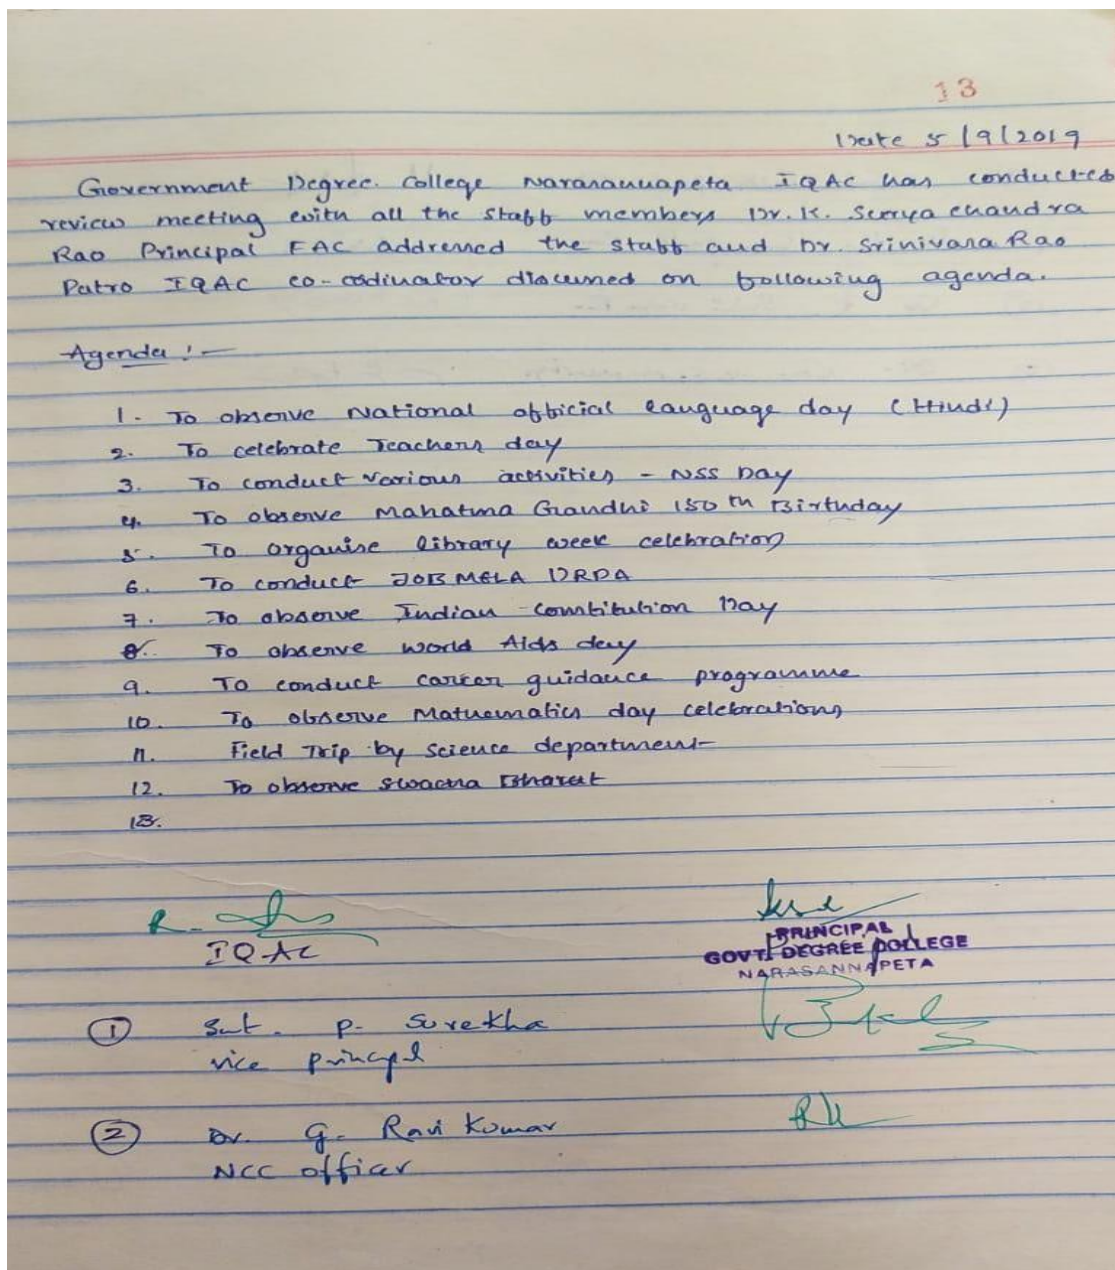 13
Date 5/9/2019
Government Degree. College Narasannapeta IQAC has conducted
review meeting with all the staff members Dr. K. Surya chandra
Rao Principal FAC addressed the staff and Dr. Srinivasa Rao
Patro IQAC co-ordinator discussed on following agenda.
Agenda :-
1. To observe National official language day (Hindi)
2. To celebrate Teachers day
3. To conduct various activities - NSS Day
4. To observe Mahatma Gandhi 150th Birthday
5. To organise library week celebration
6. To conduct JOB MELA DRDA
7. To observe Indian Constitution Day
8. To observe world Aids day
9. To conduct career guidance programme
10. To observe Mathematics day celebrations
11. Field Trip by science department
12. To observe swacha Bharat
13.
IQAC
PRINCIPAL
GOVT. DEGREE COLLEGE
NARASANNAPETA
1 Smt. P. Surekha
vice principal
2 Dr. G. Ravi Kumar
NCC officer